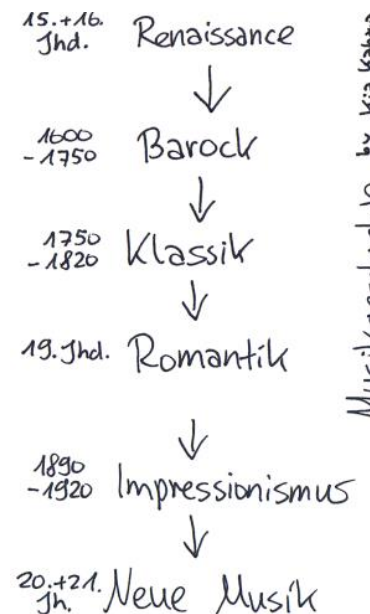 15.+16. Jhd. Renaissance
1600 -1750 Barock
1750 -1820 Klassik
19. Jhd. Romantik
1890 -1920 Impressionismus
20.+21. Jh. Neue Musik
by Kia